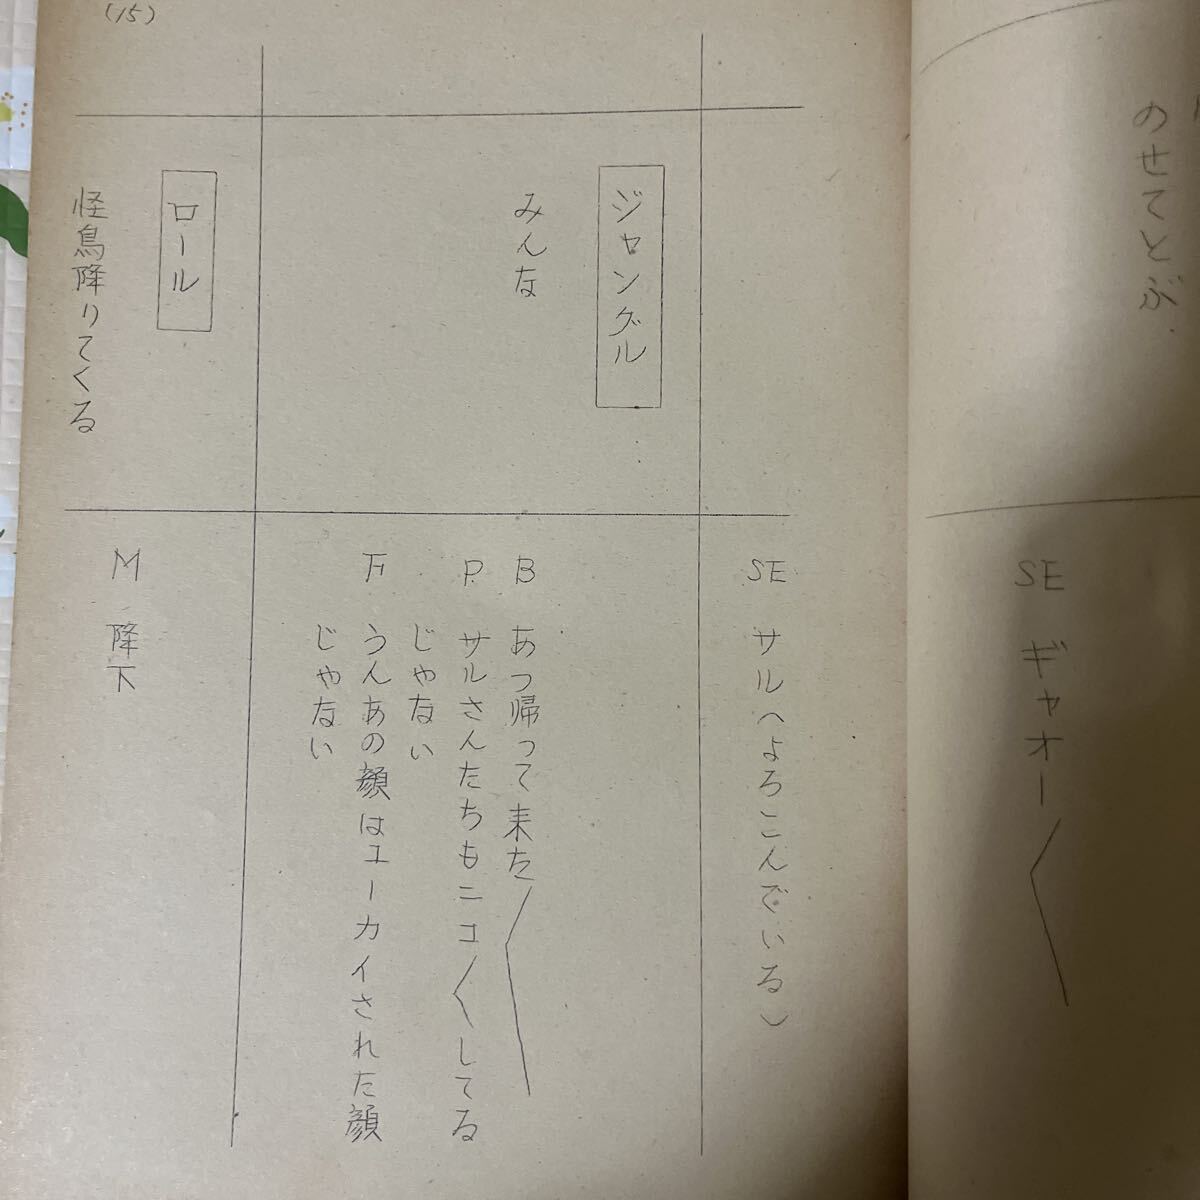 のせてとぶ
SE ギャオー〱
(15)
SE サル(よろこんでいる)
ジャングル
みんな
B あっ帰って来た〱
P サルさんたちもニコ〱してる
じゃない
F うんあの顔はユーカイされた顔
じゃない
ロール
怪鳥降りてくる
M 降下